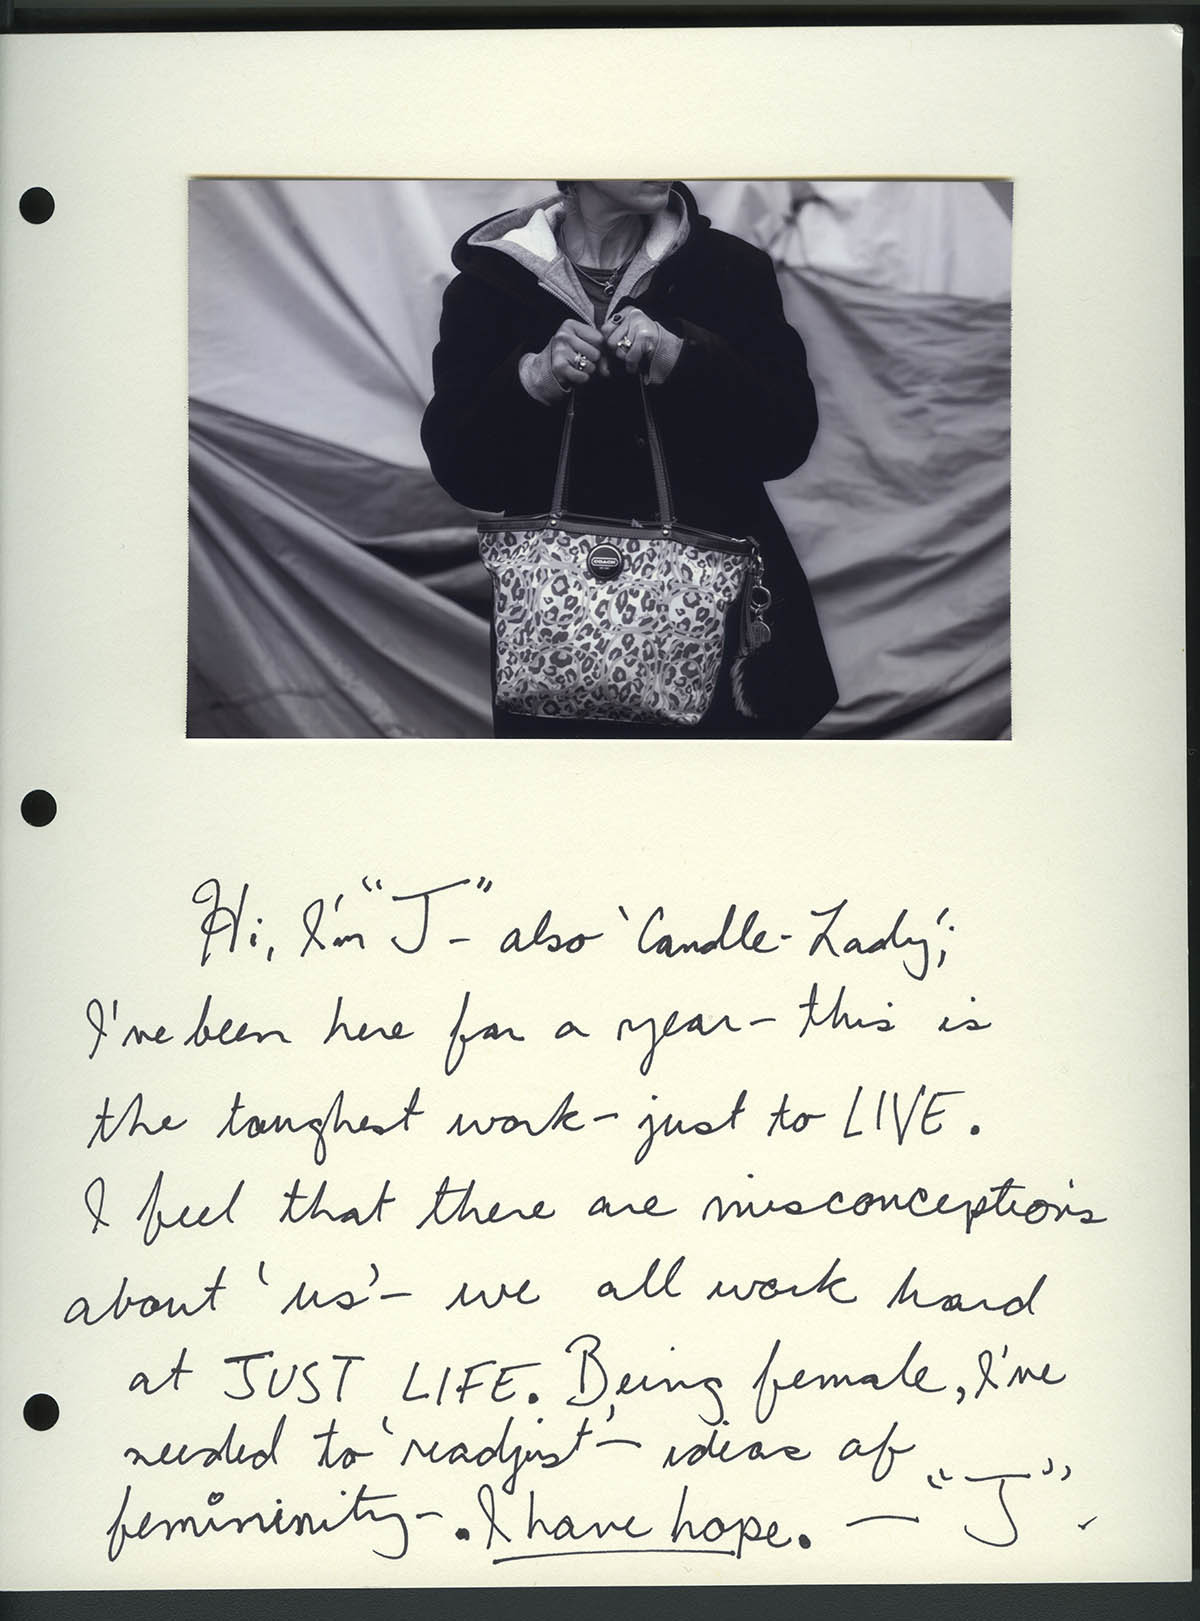 COACH
Hi, I'm "J" - also 'Candle-Lady';
I've been here for a year - this is
the toughest work - just to LIVE.
I feel that there are misconceptions
about 'us' - we all work hard
at JUST LIFE. Being female, I've
needed to 'readjust' - ideas of
femininity - . I have hope. — "J".